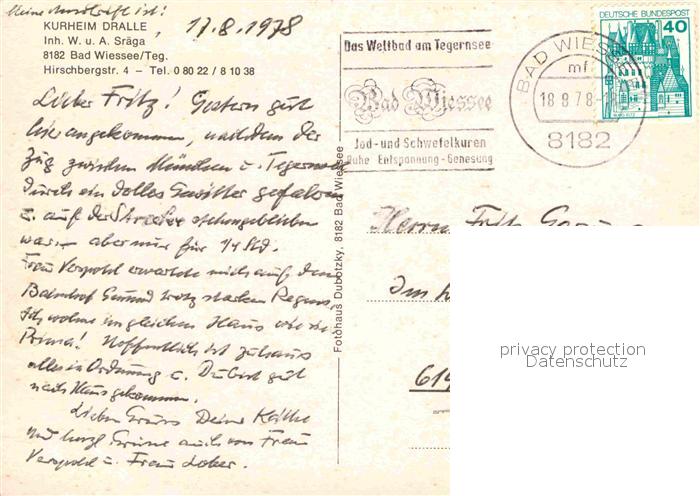 Meine Anschrift ist!
KURHEIM DRALLE, 17.8.1978
Inh. W. u. A. Sräga
8182 Bad Wiessee/Teg.
Hirschbergstr. 4 – Tel. 0 80 22 / 8 10 38
Lieber Fritz! Gestern gut
hier angekommen, nachdem der
Zug zwischen München u. Tegernsee
durch ein tolles Gewitter gefahren
u. auf der Strecke stehengeblieben
war – aber nur für 1/4 Std.
Frau Verpohl erwartete mich auf dem
Bahnhof Gmund trotz starken Regens.
Ich wohne im gleichen Haus wie sie
Prima! Hoffentlich ist zuhaus
alles in Ordnung u. Du bist gut
nach Haus gekommen.
Lieben Gruss Deine Käthe
und herzl Grüsse auch von Frau
Verpohl u. Frau Lober.
Fotohaus Dubotzky, 8182 Bad Wiessee
Das Weltbad am Tegernsee
Bad Wiessee
Jod- und Schwefelkuren
Ruhe Entspannung - Genesung
BAD WIESSEE
mf
18.8.78
8182
DEUTSCHE BUNDESPOST
40
Herrn Fritz
Im
61
privacy protection
Datenschutz